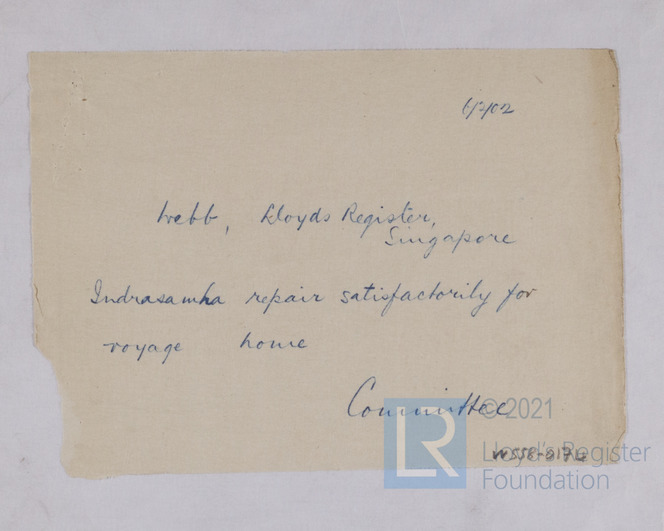 6/2/02
Webb, Lloyds Register,
Singapore
Indrasamha repair satisfactorily for
voyage home
Committee
© 2021
LR
Lloyd's Register
Foundation
W558-0174